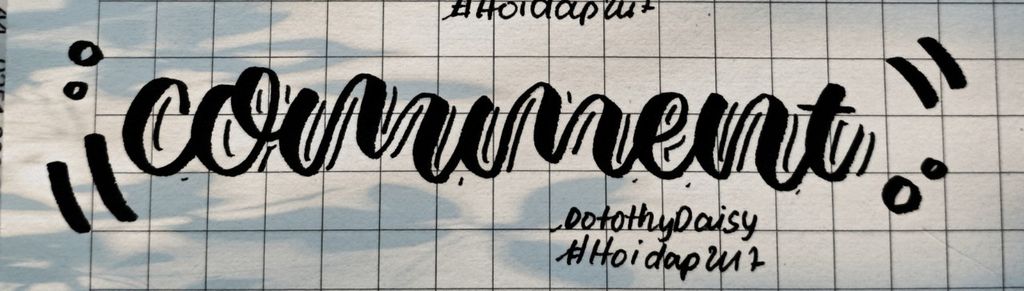 #Hoidap247
comment
DotothyDaisy
#Hoidap247